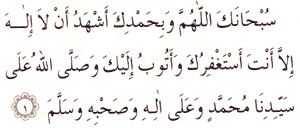 سُبْحَانَكَ اللّٰهُمَّ وَبِحَمْدِكَ أَشْهَدُ أَنْ لَا إِلٰهَ
إِلَّا أَنْتَ أَسْتَغْفِرُكَ وَأَتُوبُ إِلَيْكَ وَصَلَّى اللهُ عَلَى
سَيِّدِنَا مُحَمَّدٍ وَعَلَى اٰلِهِ وَصَحْبِهِ وَسَلَّمَ ١